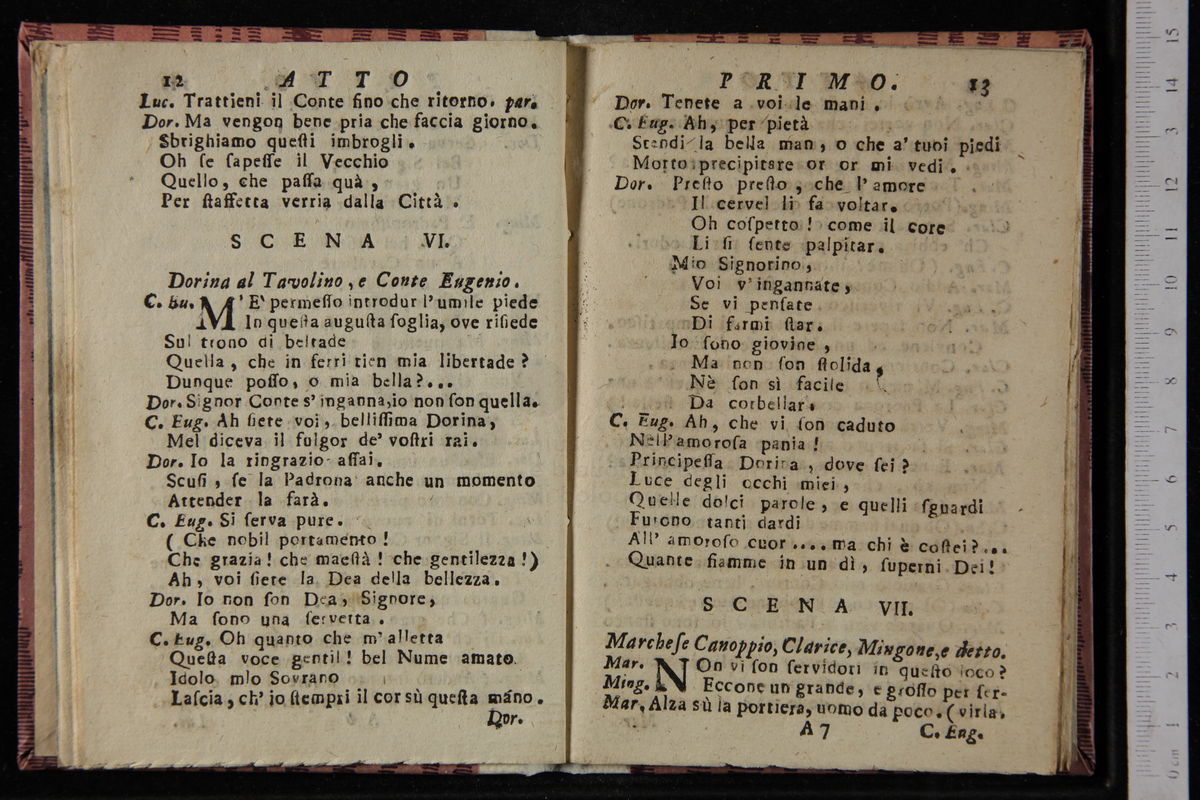 12 ATTO
Luc. Trattieni il Conte fino che ritorno. par.
Dor. Ma vengon bene pria che faccia giorno.
Sbrighiamo queſti imbrogli.
Oh ſe ſapeſſe il Vecchio
Quello, che paſſa quà,
Per ſtaffetta verria dalla Città.
SCENA VI.
Dorina al Tavolino, e Conte Eugenio.
C. Eu. M' E' permeſſo introdur l'umile piede
In queſta auguſta ſoglia, ove riſiede
Sul trono di beltade
Quella, che in ferri tien mia libertade?
Dunque poſſo, o mia bella?...
Dor. Signor Conte s'inganna, io non ſon quella.
C. Eug. Ah ſiete voi, belliſſima Dorina,
Mel diceva il fulgor de' voſtri rai.
Dor. Io la ringrazio aſſai.
Scuſi, ſe la Padrona anche un momento
Attender la farà.
C. Eug. Si ſerva pure.
( Che nobil portamento!
Che grazia! che maeſtà! che gentilezza!)
Ah, voi ſiete la Dea della bellezza.
Dor. Io non ſon Dea, Signore,
Ma ſono una ſervetta.
C. Eug. Oh quanto che m'alletta
Queſta voce gentil! bel Nume amato
Idolo mio Sovrano
Laſcia, ch'io ſtempri il cor sù queſta máno.
Dor.
PRIMO. 13
Dor. Tenete a voi le mani.
C. Eug. Ah, per pietà
Stendi la bella man, o che a' tuoi piedi
Motto precipitare or or mi vedi.
Dor. Preſto preſto, che l'amore
Il cervel li fa voltar.
Oh coſpetto! come il core
Li ſi ſente palpitar.
Mio Signorino,
Voi v'ingannate,
Se vi penſate
Di farmi ſtar.
Io ſono giovine,
Ma non ſon ſtolida,
Nè ſon sì facile
Da corbellar.
C. Eug. Ah, che vi ſon caduto
Nell'amoroſa pania!
Principeſſa Dorina, dove ſei?
Luce degli occhi miei,
Quelle dolci parole, e quelli ſguardi
Furono tanti dardi
All' amoroſo cuor .... ma chi è coſtei?...
Quante fiamme in un dì, ſuperni Dei!
SCENA VII.
Marcheſe Canoppio, Clarice, Mingone, e detto.
Mar. NOn vi ſon ſervidori in queſto loco?
Ming. Eccone un grande, e groſſo per ſer-
Mar. Alza sù la portiera, uomo da poco. (virla.
A 7 C. Eug.